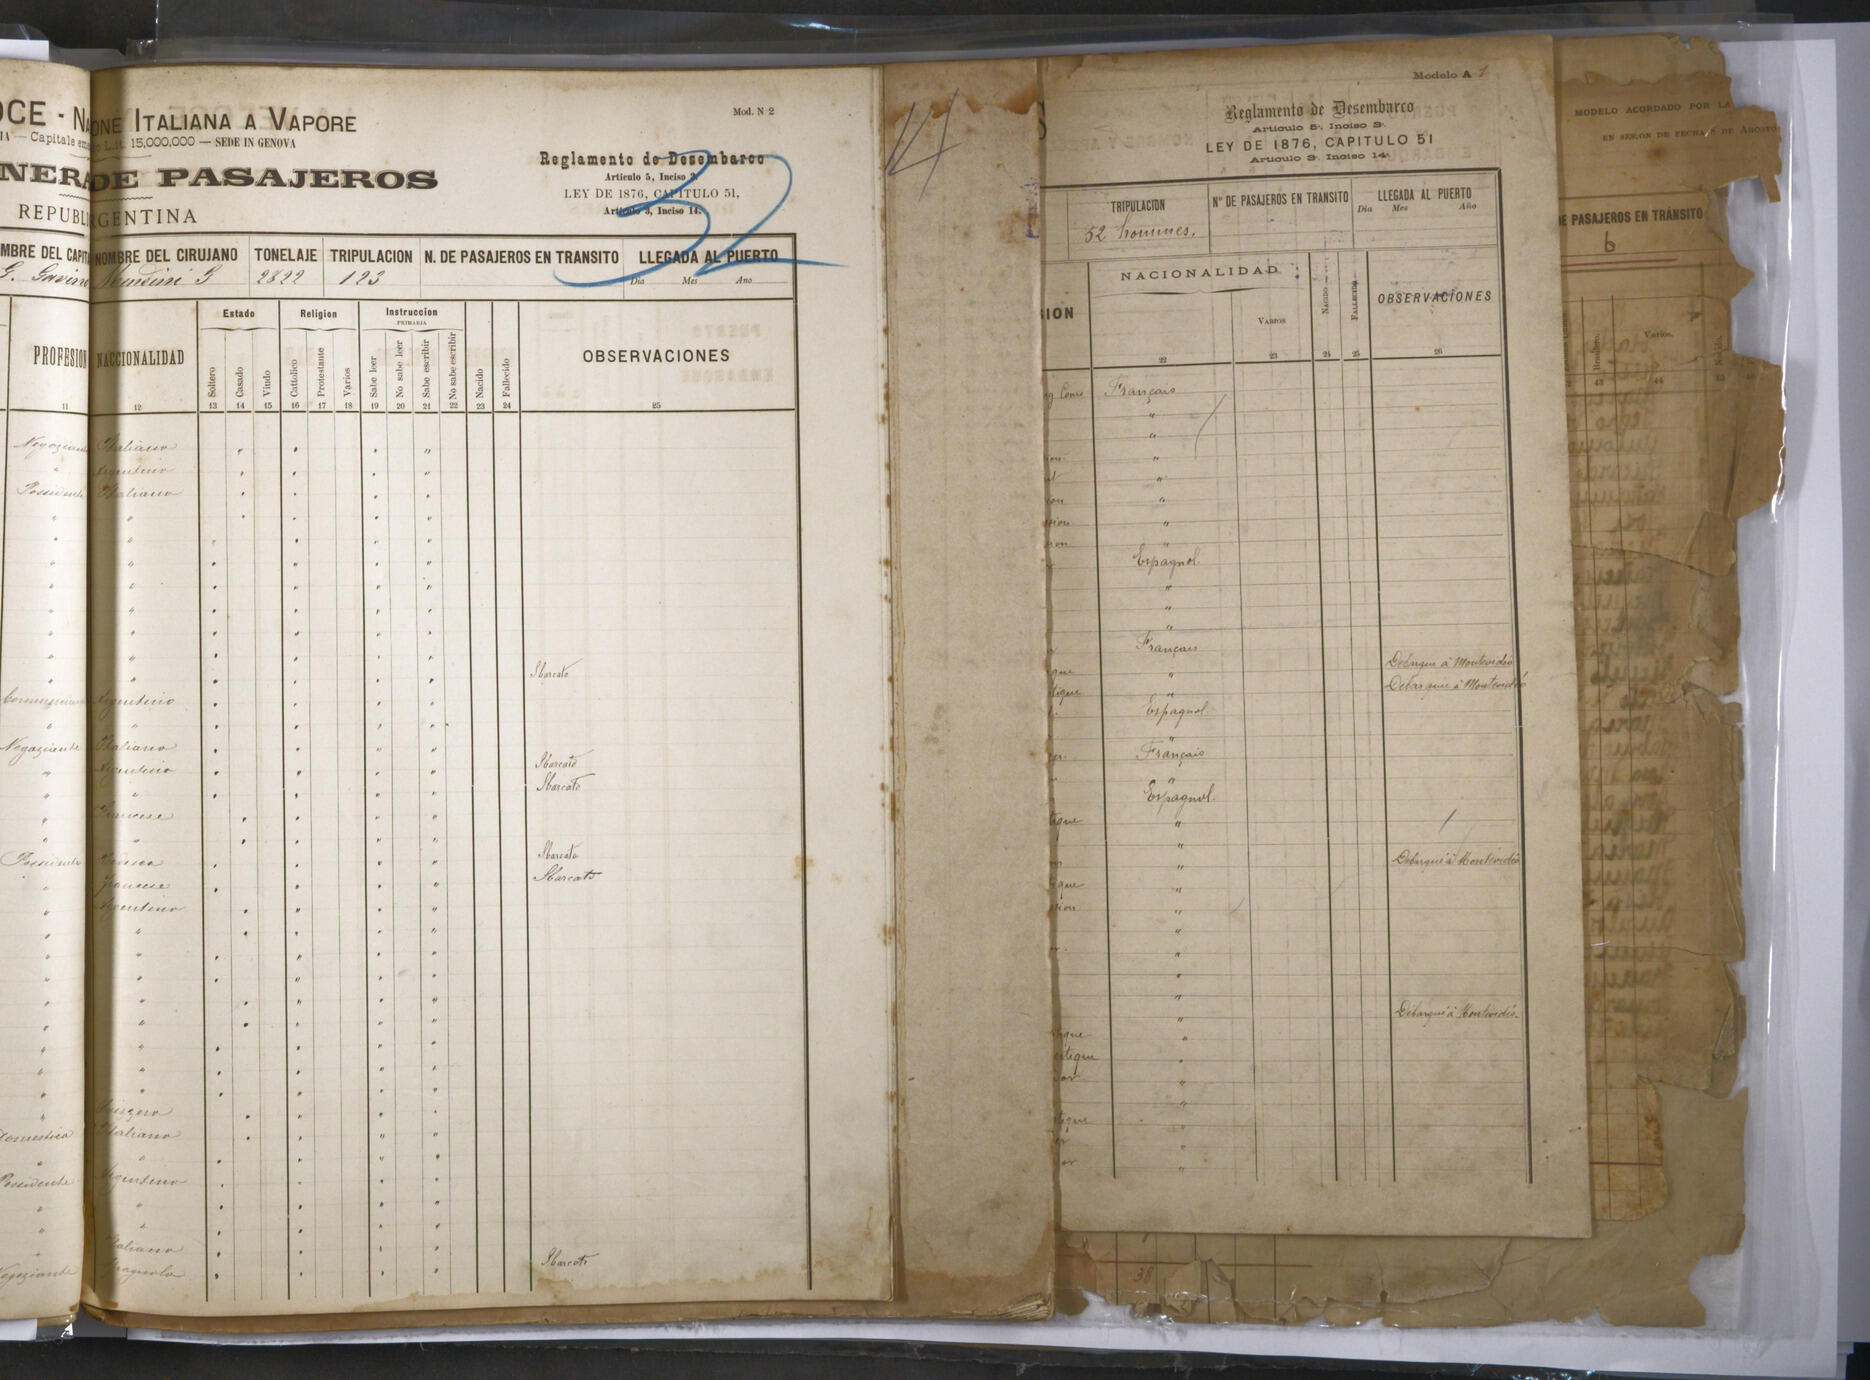 OCE - NA ONE ITALIANA A VAPORE
IA — Capitale em L.it. 15,000,000 — SEDE IN GENOVA
NERA DE PASAJEROS
REPUBLI GENTINA
Mod. N 2
Reglamento de Desembarco
Articulo 5, Inciso 3.
LEY DE 1876, CAPITULO 51,
Articulo 3, Inciso 14.
32
MBRE DEL CAPITA NOMBRE DEL CIRUJANO TONELAJE TRIPULACION N. DE PASAJEROS EN TRANSITO LLEGADA AL PUERTO
G. Gavino 2822 123 Dia Mes Año
PROFESION NACCIONALIDAD Estado Religion Instruccion OBSERVACIONES
PRIMARIA
Soltero Casado Viudo Cattolico Protestante Varios Sabe leer No sabe leer Sabe escribir No sabe escribir Nacido Fallecido
11 12 13 14 15 16 17 18 19 20 21 22 23 24 25
Negoziante Italiano " " " "
" Argentino " " " "
Possidente Italiano " " " "
" " " " " "
" " " " " "
" " " " " "
" " " " " "
" " " " " "
" " " " " "
" " " " " "
" " " " " " Sbarcato
Commerciante Argentino " " " "
" " " " " "
Negoziante Italiano " " " "
" Argentino " " " " Sbarcato
" " " " " " Sbarcato
" Francese " " " "
" " " " " "
Possidente " " " " Sbarcato
" Francese " " " " Sbarcato
" Argentino " " " "
" " " " " "
" " " " " "
" " " " " "
" " " " " "
" " " " " "
" " " " " "
" " " " " "
" " " " " "
" Svizzero " " " "
Domestica Italiano " " " "
" " " " " "
Possidente Argentino " " " "
" " " " " "
" " " " " "
" Italiano " " " "
Negoziante Spagnolo " " " " Sbarcato
14
Modelo A 1
Reglamento de Desembarco
Articulo 5º. Inciso 3º.
LEY DE 1876, CAPITULO 51
Articulo 3º. Inciso 14º.
TRIPULACION Nº DE PASAJEROS EN TRANSITO LLEGADA AL PUERTO
Dia Mes Año
52 hommes.
ION NACIONALIDAD NACIDO FALLECIDO OBSERVACIONES
VARIOS
22 23 24 25 26
Français
"
"
"
"
"
"
"
Espagnol.
"
"
"
Français
" Débarqué à Montevidéo
" Débarqué à Montevidéo
Espagnol.
"
Français
"
Espagnol.
"
"
" Débarqué à Montevidéo
"
"
"
"
"
"
" Débarqué à Montevidéo
"
"
"
"
"
"
38
MODELO ACORDADO POR LA
EN SESIÓN DE FECHA 8 DE AGOSTO
DE PASAJEROS EN TRÁNSITO
6
Varios.
43 44